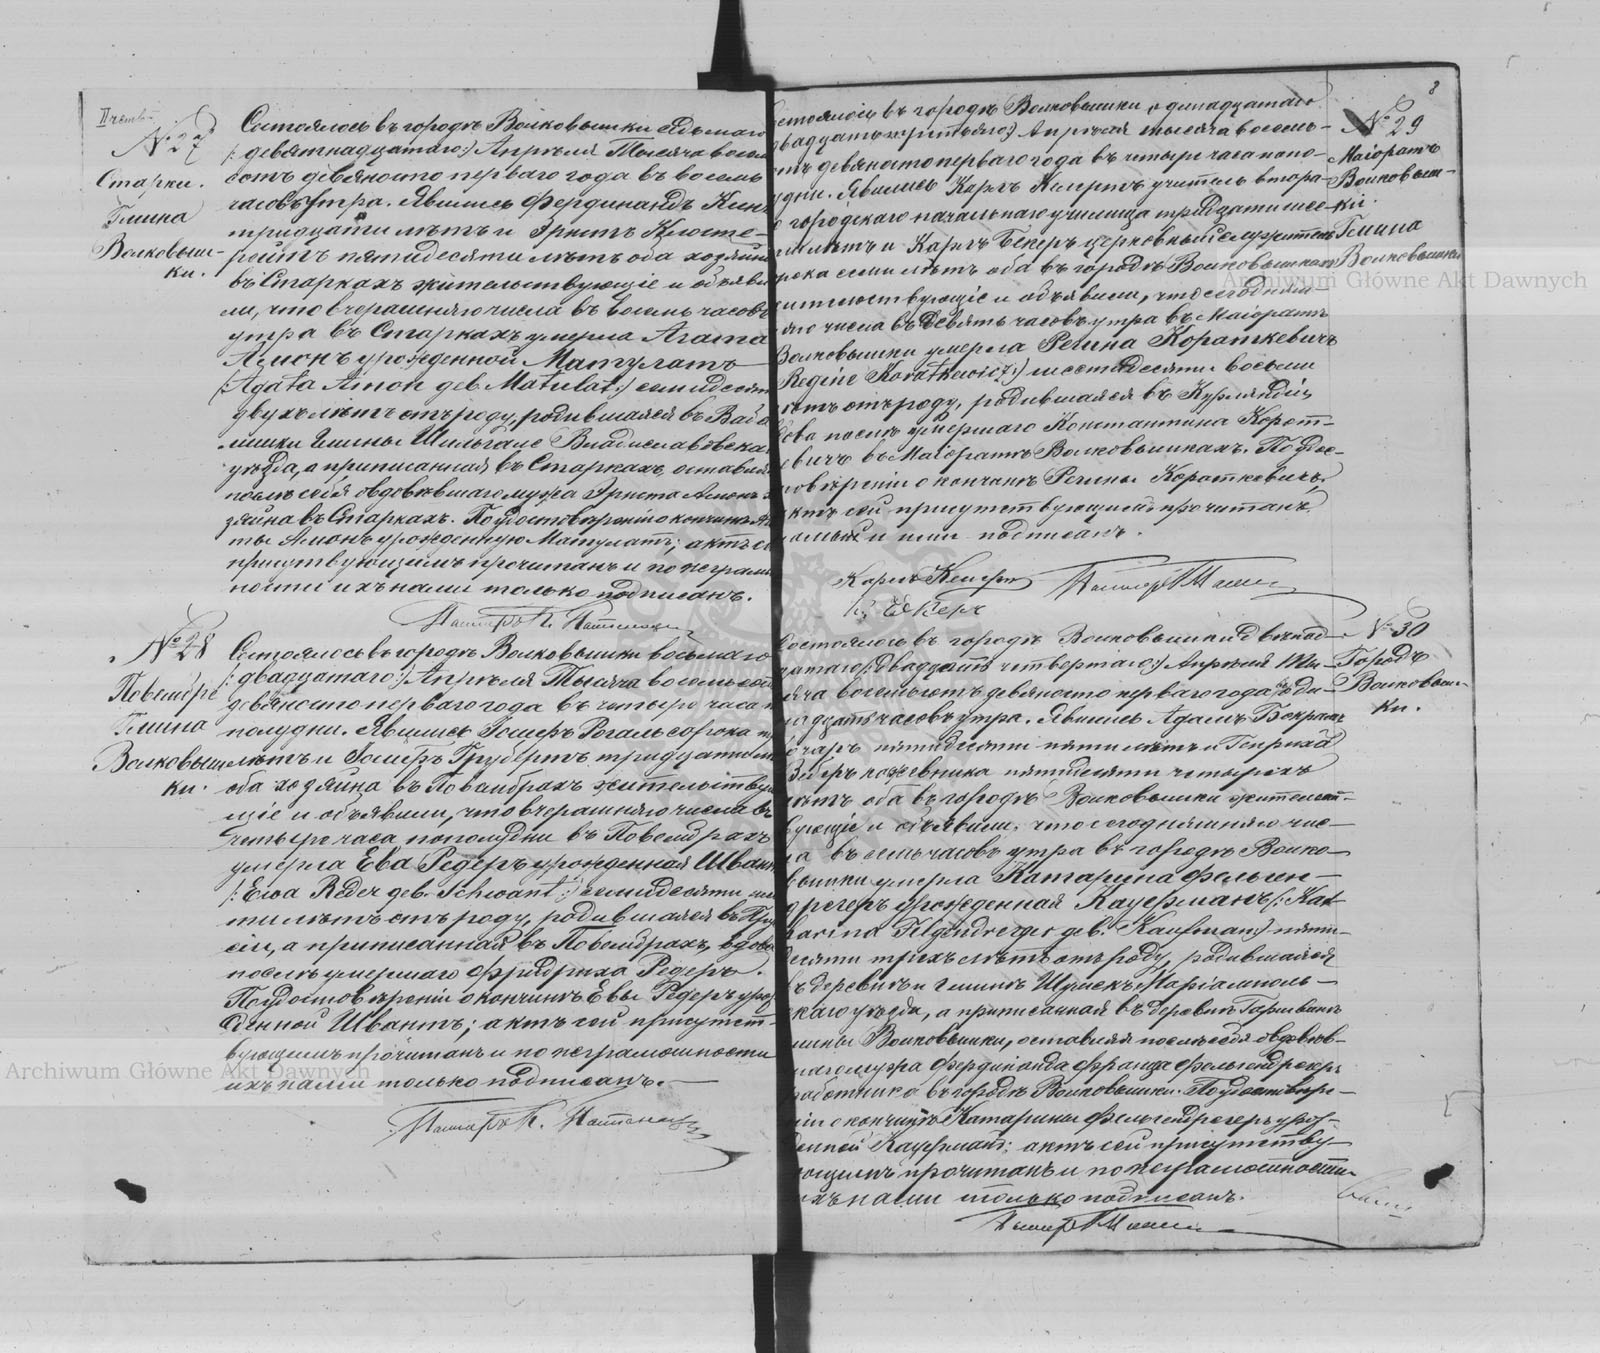 II четв.
№ 27
Старки.
Гмина
Волковыш-
ки.
Состоялось въ городѣ Волковышки седьмаго
/: девятнадцатаго :/ Апрѣля Тысяча восем
сотъ девяносто перваго года въ восемь
часовъ утра. Явились Фердинандъ
тридцати лѣтъ и Эрнстъ Клосте-
рейтъ пятидесяти лѣтъ оба хозяина
въ Старкахъ жительствующіе и объяви
ли, что вчерашняго числа въ восемь часовъ
утра въ Старкахъ умерла Агата
Амонъ урожденной Матулатъ
(:Agata Amon geb. Matulat:) семидесяти
двухъ лѣтъ отъ роду, родившаяся въ
лишки гмины Шильгале Владиславовска
уѣзда, а приписанная въ Старкахъ, оставивъ
послѣ себя овдовѣвшаго мужа Эрнста Амонъ
зяина въ Старкахъ. По удостовѣреніи о кончинѣ
ты Амонъ урожденную Матулатъ; актъ се
присутвующимъ прочитанъ и по неграм
ности ихъ нами только подписанъ.
Пасторъ К.
№ 28
Повембре
Гмина
Волковыш
ки.
Состоялось въ городѣ Волковышки восьмаго
/: двадцатаго :/ Апрѣля Тысяча восемьсотъ
девяносто перваго года въ четыре часа
полудни. Явились Іосифъ Рогаль сорока
лѣтъ и Іосифъ Грубертъ тридцати
оба хозяина въ Повембрахъ жительству
щіе и объявили, что вчерашняго числа въ
четыре часа пополудни въ Повембрахъ
умерла Ева Редеръ урожденная Швантъ
/: Ewa Reder geb. Schwant :/ семидесяти
ти лѣтъ отъ роду, родившаяся въ Прус
сіи, а приписанная въ Повембрахъ, вдова
послѣ умершаго Фридриха Редеръ.
По удостовѣреніи о кончинѣ Евы Редеръ урож
денной Швантъ; актъ сей присутст-
вующимъ прочитанъ и по неграмотности
ихъ нами только подписанъ.—
Пасторъ К.
8
№ 29
Маіоратъ
Волковыш-
ки.
Гмина
Волковышки
стоялось въ городѣ Волковышки одинадцатаго
двадцать третьяго:) Апрѣля тысяча восемь-
отъ девяносто перваго года въ четыре часа попо-
удни. Явились Карлъ учитель втора-
о городскаго начальнаго училища тридцати шес-
ти лѣтъ и Карлъ Бекеръ церковный служитель
рока семи лѣтъ оба въ городѣ Волковышкахъ
ительствующіе и объявили, что сегодняш-
яго числа въ девять часовъ утра въ Маіоратѣ
Волковышки умерла Регина Кораткевичъ
Regine Koratkewicz:) шестидесяти восьми
лѣтъ отъ роду, родившаяся въ Курляндіи,
дова послѣ умершаго Константина Корат-
евичъ въ Маіоратѣ Волковышкахъ. По удос-
товѣреніи о кончинѣ Регины Кораткевичъ,
актъ сей присутствующимъ прочитанъ,
ими и нами подписанъ.
Карлъ
К. Бекеръ
Пасторъ
№ 30
Городъ
Волковыш-
ки.
Состоялось въ городѣ Волковышки двѣнад-
цатаго (:двадцать четвертаго:) Апрѣля Ты-
яча восемьсотъ девяносто перваго года въ оди-
надцать часовъ утра. Явились Адамъ
пятидесяти пяти лѣтъ и Генриха
Веберъ пятидесяти четырехъ
лѣтъ оба въ городѣ Волковышки жительст-
вующіе и объявили, что сегодняшняго чис-
ла въ семь часовъ утра въ городѣ Волко-
вышки умерла Катарина Фельген-
дрегеръ урожденная Кауфманъ (:Kat-
harina Felgendreger geb. Kaufman:) пяти-
десяти трехъ лѣтъ отъ роду, родившаяся
въ деревнѣ и гминѣ Шумскъ Маріамполь-
скаго уѣзда, а приписанная въ деревнѣ
мины Волковышки, оставивъ послѣ себя овдовѣв-
шаго мужа Фердинанда Франца Фельгендрегеръ
работника въ городѣ Волковышки. По удостовѣре-
ніи о кончинѣ Катарины Фельгендрегеръ урож-
денной Кауфманъ; актъ сей присутству-
ющимъ прочитанъ и по неграмотности
ихъ нами только подписанъ.
Пасторъ
Archiwum Główne Akt Dawnych
Archiwum Główne Akt Dawnych